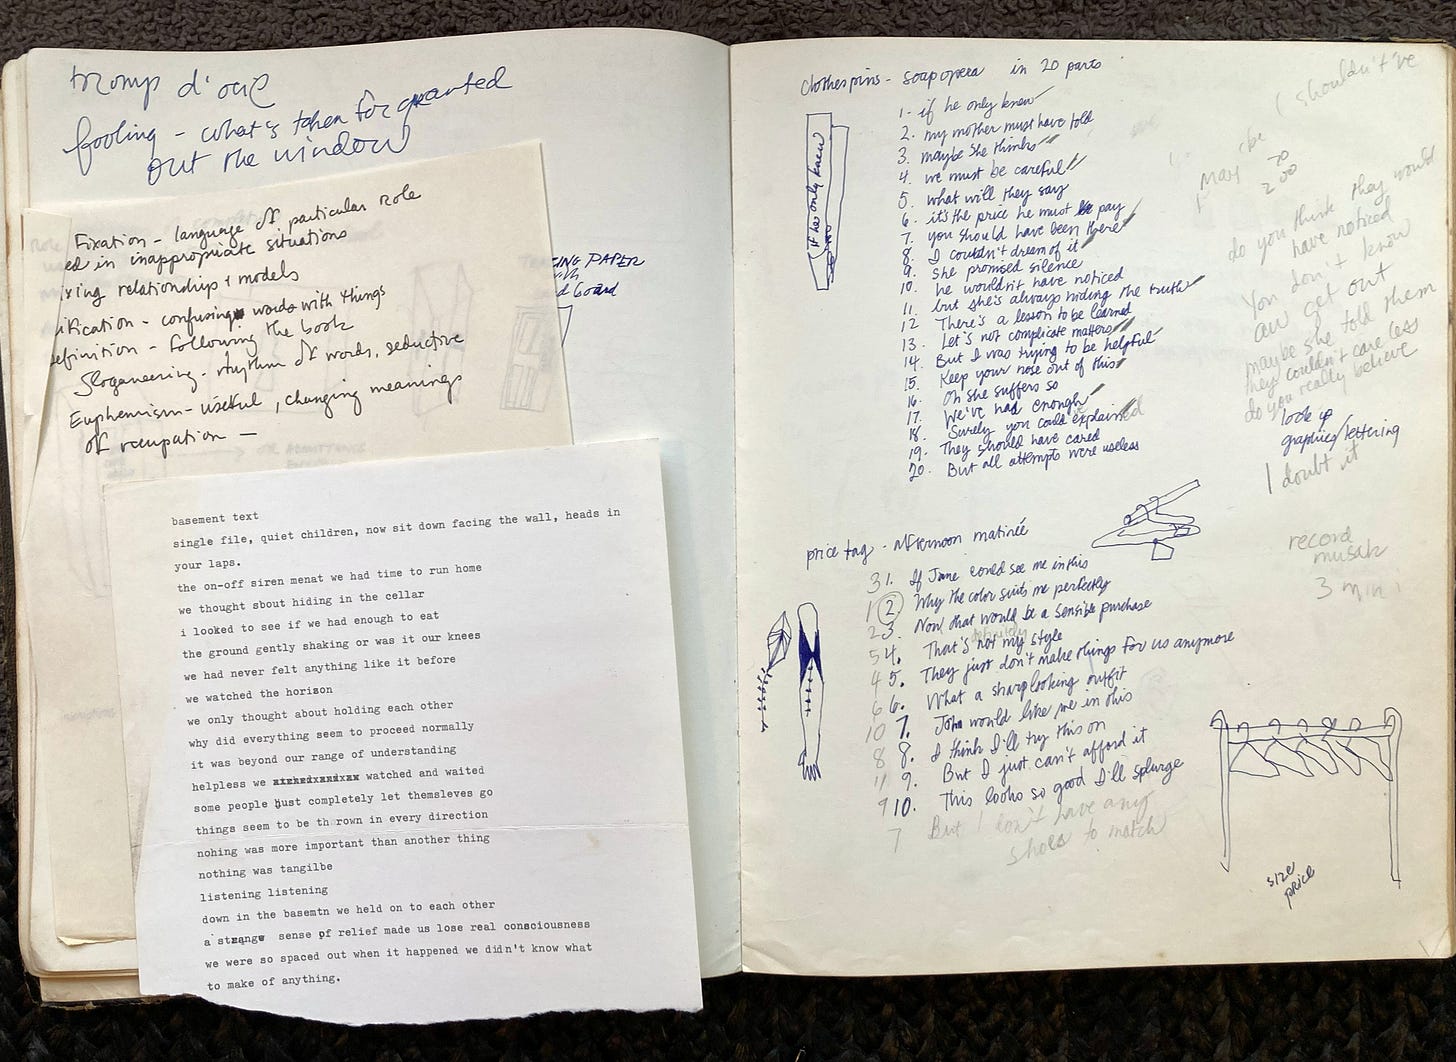 tromp d'oeil
fooling - what's taken for granted
out the window
Fixation - language of particular role
ed in inappropriate situations
xing relationships + models
ification - confusing words with things
efinition - following the book
Sloganeering - rhythm of words, seductive
Euphemism - useful, changing meanings
of occupation —
ING PAPER
with
d board
basement text
single file, quiet children, now sit down facing the wall, heads in
your laps.
the on-off siren menat we had time to run home
we thought sbout hiding in the cellar
i looked to see if we had enough to eat
the ground gently shaking or was it our knees
we had never felt anything like it before
we watched the horizon
we only thought about holding each other
why did everything seem to proceed normally
it was beyond our range of understanding
helpless we watched and waited
some people just completely let themsleves go
things seem to be th rown in every direction
nohing was more important than another thing
nothing was tangilbe
listening listening
down in the basemtn we held on to each other
a strange sense of relief made us lose real consciousness
we were so spaced out when it happened we didn't know what
to make of anything.
clothespins - soap opera in 20 parts
1. if he only knew
2. my mother must have told
3. maybe she thinks
4. we must be careful
5. what will they say
6. it's the price he must pay
7. you should have been there
8. I couldn't dream of it
9. she promised silence
10. he wouldn't have noticed
11. but she's always hiding the truth
12 There's a lesson to be learned
13. Let's not complicate matters
14. But I was trying to be helpful
15. Keep your nose out of this
16. Oh she suffers so
17. We've had enough
18. Surely you could explained
19. They should have cared
20. But all attempts were useless
if he only knew
I shouldn't've
May be
20
200
do you think they would
have noticed
You don't know
all get out
maybe she told them
they couldn't care less
do you really believe
look up
graphics/lettering
I doubt it
record
musak
3 min
price tag - afternoon matinée
3 1. If Jane could see me in this
1 2 Why the color suits me perfectly
2 3. Now that would be a sensible purchase
definitely
5 4. That's not my style
4 5. They just don't make things for us anymore
6 6. What a sharp looking outfit
10 7. John would like me in this
8 8. I think I'll try this on
11 9. But I just can't afford it
9 10. This looks so good I'll splurge
7 But I don't have any
shoes to match
size
price